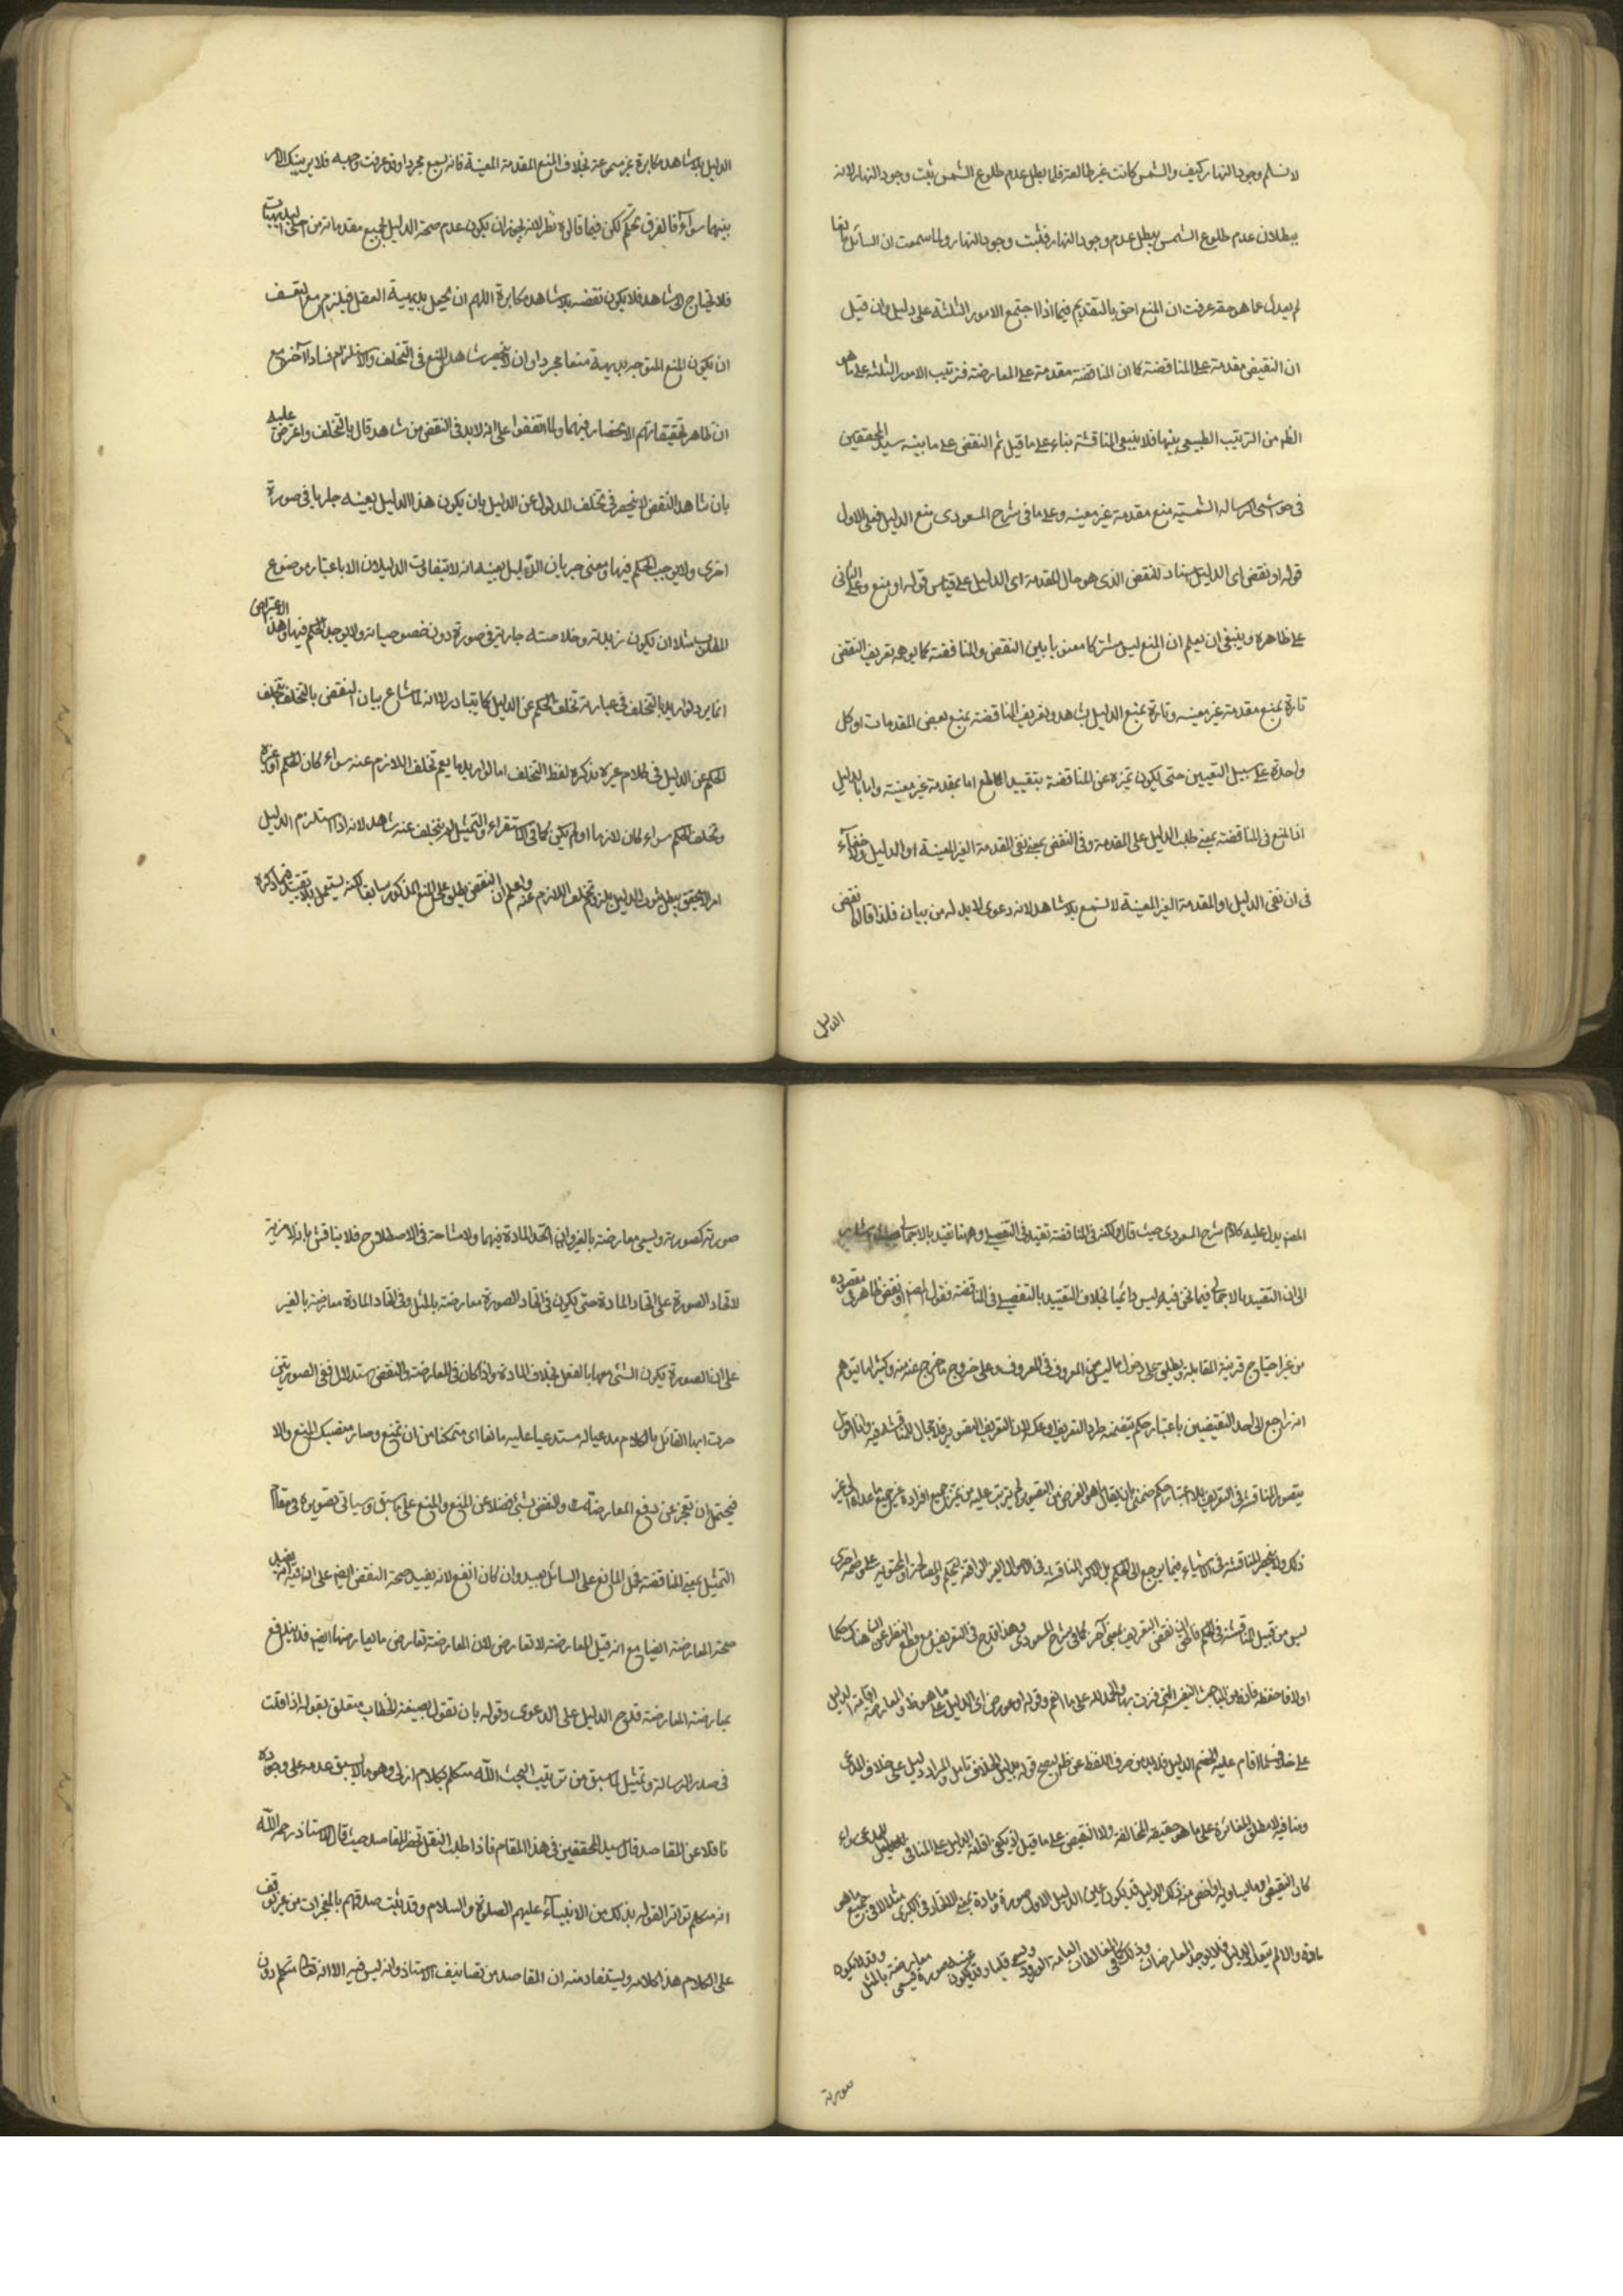 لا نسلم وجود النهار كيف والشمس كانت غير طالعة فلما بطل عدم طلوع الشمس ثبت وجود النهار لانه
ببطلان عدم طلوع الشمس يبطل عدم وجود النهار فثبت وجود النهار ولما سمعت ان السائل
لم يعدل عما هو حقه عرفت ان المنع احق بالتقديم فيما اذا اجتمع الامور الثلثة على دليل وان قيل
ان النقيض مقدمة على المناقضة كما ان المناقضة مقدمة على المعارضة فترتيب الامور الثلثة على ما هو
الظ من الترتيب الطبيعي بينها فلا ينبغي المناقشة بناء على ما قيل ثم النقض على ما بينه سيد المحققين
في حواشي الرسالة الشمسية منع مقدمة غير معينه وعلى ما في شرح المسعودي منع الدليل فعلى الاول
قوله او نقض اي الدليل اسناد للنقض الذي هو حال المقدمة اى الدليل على قياس قوله او منع وعلى الثاني
على ظاهره وينبغي ان يعلم ان المنع ليس مشتركا معنويا بين النقض والمناقضة كما يوهمه تعريف النقض
تارة بمنع مقدمة غير معينه وتارة بمنع الدليل بشاهد وتعريف المناقضة بمنع بعض المقدمات او كل
واحدة على سبيل التعيين حتى يكون تميزه عن المناقضة بتقييد المنع اما بمقدمة غير معينة واما بالدليل
اذ المنع في المناقضة بمعنى طلب الدليل على المقدمة وفي النقض بمعنى نفي المقدمة الغير المعينة او الدليل ولا خفآء
في ان نفى الدليل او المقدمة الغير المعينة لا تسمع بلا شاهد لانه دعوى لا بد له من بيان فلذا قالوا نقض
الدليل
الدليل بلا شاهد مكابرة غير مسموعة بخلاف المنع المقدمة المعينة فانه يسمع مجردا وقد عرفت وجهه فلا يريبنك الامر
بينهما سوآء فالفرق تحكم لكن فيما قالوه نظر لانه يجوز ان يكون عدم صحة الدليل لجميع مقدماته من اجلى البديهيات
فلا تحتاج الى شاهد فلا يكون نقضه بلا شاهد مكابرة اللهم ان يجعل بديهية العقل فيلزم مع التعسف
ان يكون المنع المتوجه بديهية منعا مجردا وان لا ينحصر شاهد المنع في التخلف والاستلزام فسادا آخر مع
ان ظاهر تحقيقاتهم الانحصار فيهما ولما اتفقوا على انه لا بد في النقض من شاهد قال بالتخلف واعترض عليه
بان شاهد النقض لا ينحصر في تخلف المدلول عن الدليل بان يكون هذا الدليل بعينه جاريا في صورة
اخرى ولا يوجب الحكم فيها ومعنى جريان الدليل بعينه انه لا يتفاوت الدليلان الا باعتبار موضوع
المطلوب مثلا ان يكون زبدته وخلاصته جارية في صورة دون خصوصياته ولا يوجد الحكم فيها وهذا الاعتراض
انما يرد لو اريد بالتخلف في عبارته تخلف الحكم عن الدليل كما يتبادر اذ انه لما شاع بيان النقض بالتخلف بتخلف
الحكم عن الدليل في كلام غيره بذكره لفظ التخلف اما لو اريد ما يعم تخلف اللازم عنه سواء كان الحكم او غيره
وتخلف الحكم سواء كان لازما او لم يكن كما في الاستقراء والتمثيل لم يتخلف عنه شاهد لانه اذا استلزم الدليل
امرا لا يتحقق يبطل ثبوت الدليل يلزم تخلف اللازم عنه واعلم ان النقض يطلق على المنع المذكور سابقا لكنه يستعمل بلا تقييد فيما ذكره
المص يدل عليه كلام شرح المسعودي حيث قال ولكنه في المناقضة تقيد في التفصيلي وههنا تقيد بالاجمالي
الى ان التقييد بالاجمالي فيما نحن فيه ليس دائميا بخلاف التقييد بالتفصيلي في المناقضة فقول المص او نقض ظاهر في مقصوده
من غير احتياج قرينة المقابلة ويطلق على دخول ما ليس من المعرف في المعرف وعلى خروج ما خرج عنه منه وكثيرا ما يتوهم
انه راجع الى احد النقيضين باعتبار حكم يتضمنه طرد التعريف او عكسه لان التعريف التصوير فلا مجال للمناقشة فيه وانا اقول
يتصور المناقشة في التعريف بلا اعتبار حكم ضمني بان يقال هو الغرض من التصوير لم يترتب عليه من تميز جميع افراده عن جميع ما عداها الى غير
ذلك ولا ينحصر المناقشة في الاشياء فيما يرجع الى الحكم بل اكثر المناقشة في الاموال الغير الواقعة
ليس من قبيل المناقشة في الحكم نقض التعريف بمعنى آخر كما في شرح المسعودي وهذا القدح في التعريف مع قطع النظر عن ان هناك حكما
اولا فاحفظه فانه من المباحث النفيسة التي فزت بها والحمد لله على ما انعم وقوله او عورض اى الدليل على ما هو ظ والمعارضة اقامة الدليل
على خلاف ما اقام عليه الخصم الدليل فلا بد من صرف اللفظ عن ظ ليصح قوله بدليل الخلاف تامل والمراد دليل على خلاف المدعى
ومنافيه لا مطلق المغايرة على ما هو حقيقة المخالفة ولا النقيض على ما قيل اذ يكفى اقامة الدليل على المنافي للمدعى سواء
كان النقيض او ما يساويه او اخص منه ذلك الدليل قد يكون عين الدليل الاول صورة ومادة بمعنى الاتحاد في الكبرى مثلا لا في جميع ما هو
مادة والا لم يتعدد الدليل فلا يوجد المعارضات وذلك كما في المغالطات العامة الورود ويسمى قلبا وقد يكون عينه صورة فيسمى معارضة بالمثل وقد لا يكون
صورته
صورته كصورته ويسمى معارضة بالغير وان اتحد المادة فيهما ولا مشاحة في الاصطلاح فلا يناقش بانه لا مزية
لاتحاد الصورة على اتحاد المادة حتى يكون في اتحاد الصورة معارضة بالمثل وفي اتحاد المادة معارضة بالغير
على ان الصورة يكون الشئ معها بالفعل بخلاف المادة واذا كان في المعارضة والنقض استدلال ففي الصورتين
صرت ايها القائل بالكلام مدعيا له مستدعيا عليه مانعا اى متمكنا من ان تمنع وصار منصبك المنع والا
فيحتمل ان تعجز عن دفع المعارضة والنقض بشئ فضلا عن المنع والمنع على ما سبق وسياتي تصويره في مقام
التمثيل بمعنى المناقضة فحمل المانع على السائل بعيد وان كان انفع لانه يفيد صحة النقض ايضا على انه فيه انه يفيد
صحة المعارضة ايضا مع انه قيل المعارضة لا تعارض لان المعارضة تعارض ما يعارضها ايضا فلا يندفع
بمعارضة المعارضة قدح الدليل على الدعوى وقوله بان تقول بصيغة الخطاب متعلق بقوله اذا قلت
في صدر الرسالة وتمثيل لما سبق من ترتيب البحث الله متكلم بكلام ازلي وهو ما لا يسبق عدمه على وجوده
ناقلا عن المقاصد قال سيد المحققين في هذا المقام فاذا طلب النقل تحضر المقاصد حيث قال الاستاذ رحمه الله
انه متكلم تواتر القول بذلك من الانبيآء عليهم الصلوة والسلام وقد ثبت صدقهم بالمعجزات من غير توقف
على الكلام هذا كلامه ويستفاد منه ان المقاصد من تصانيف الاستاذ وانه ليس فيه الا انه تعالى متكلم دون